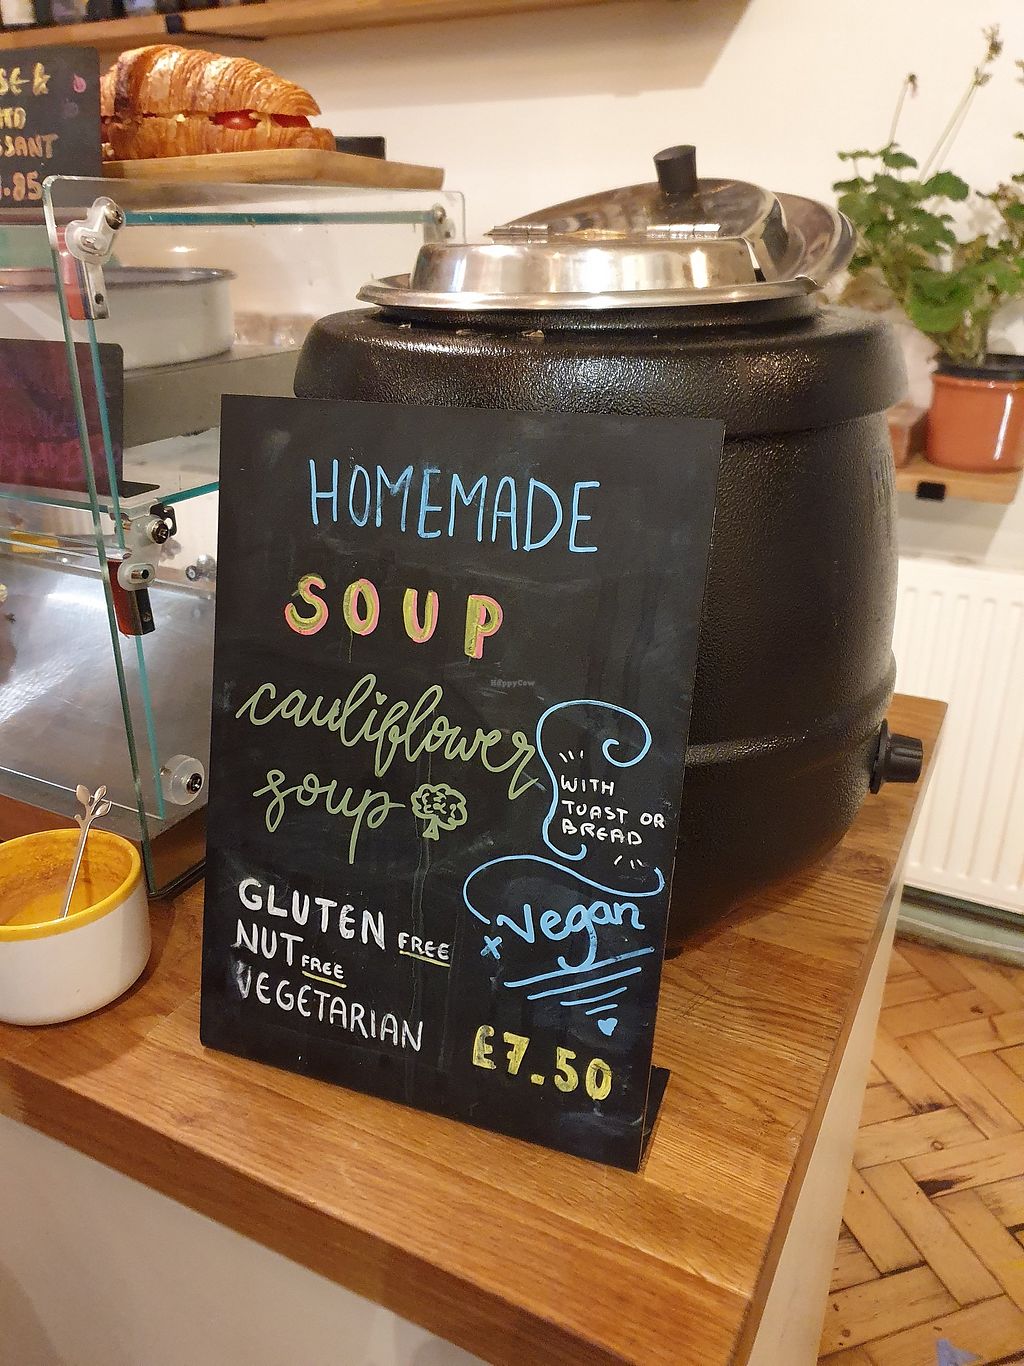 SSANT
.85
HOMEMADE
SOUP
cauliflower
soup
WITH
TOAST OR
BREAD
GLUTEN FREE
NUT FREE
VEGETARIAN
x Vegan
£7.50
HappyCow